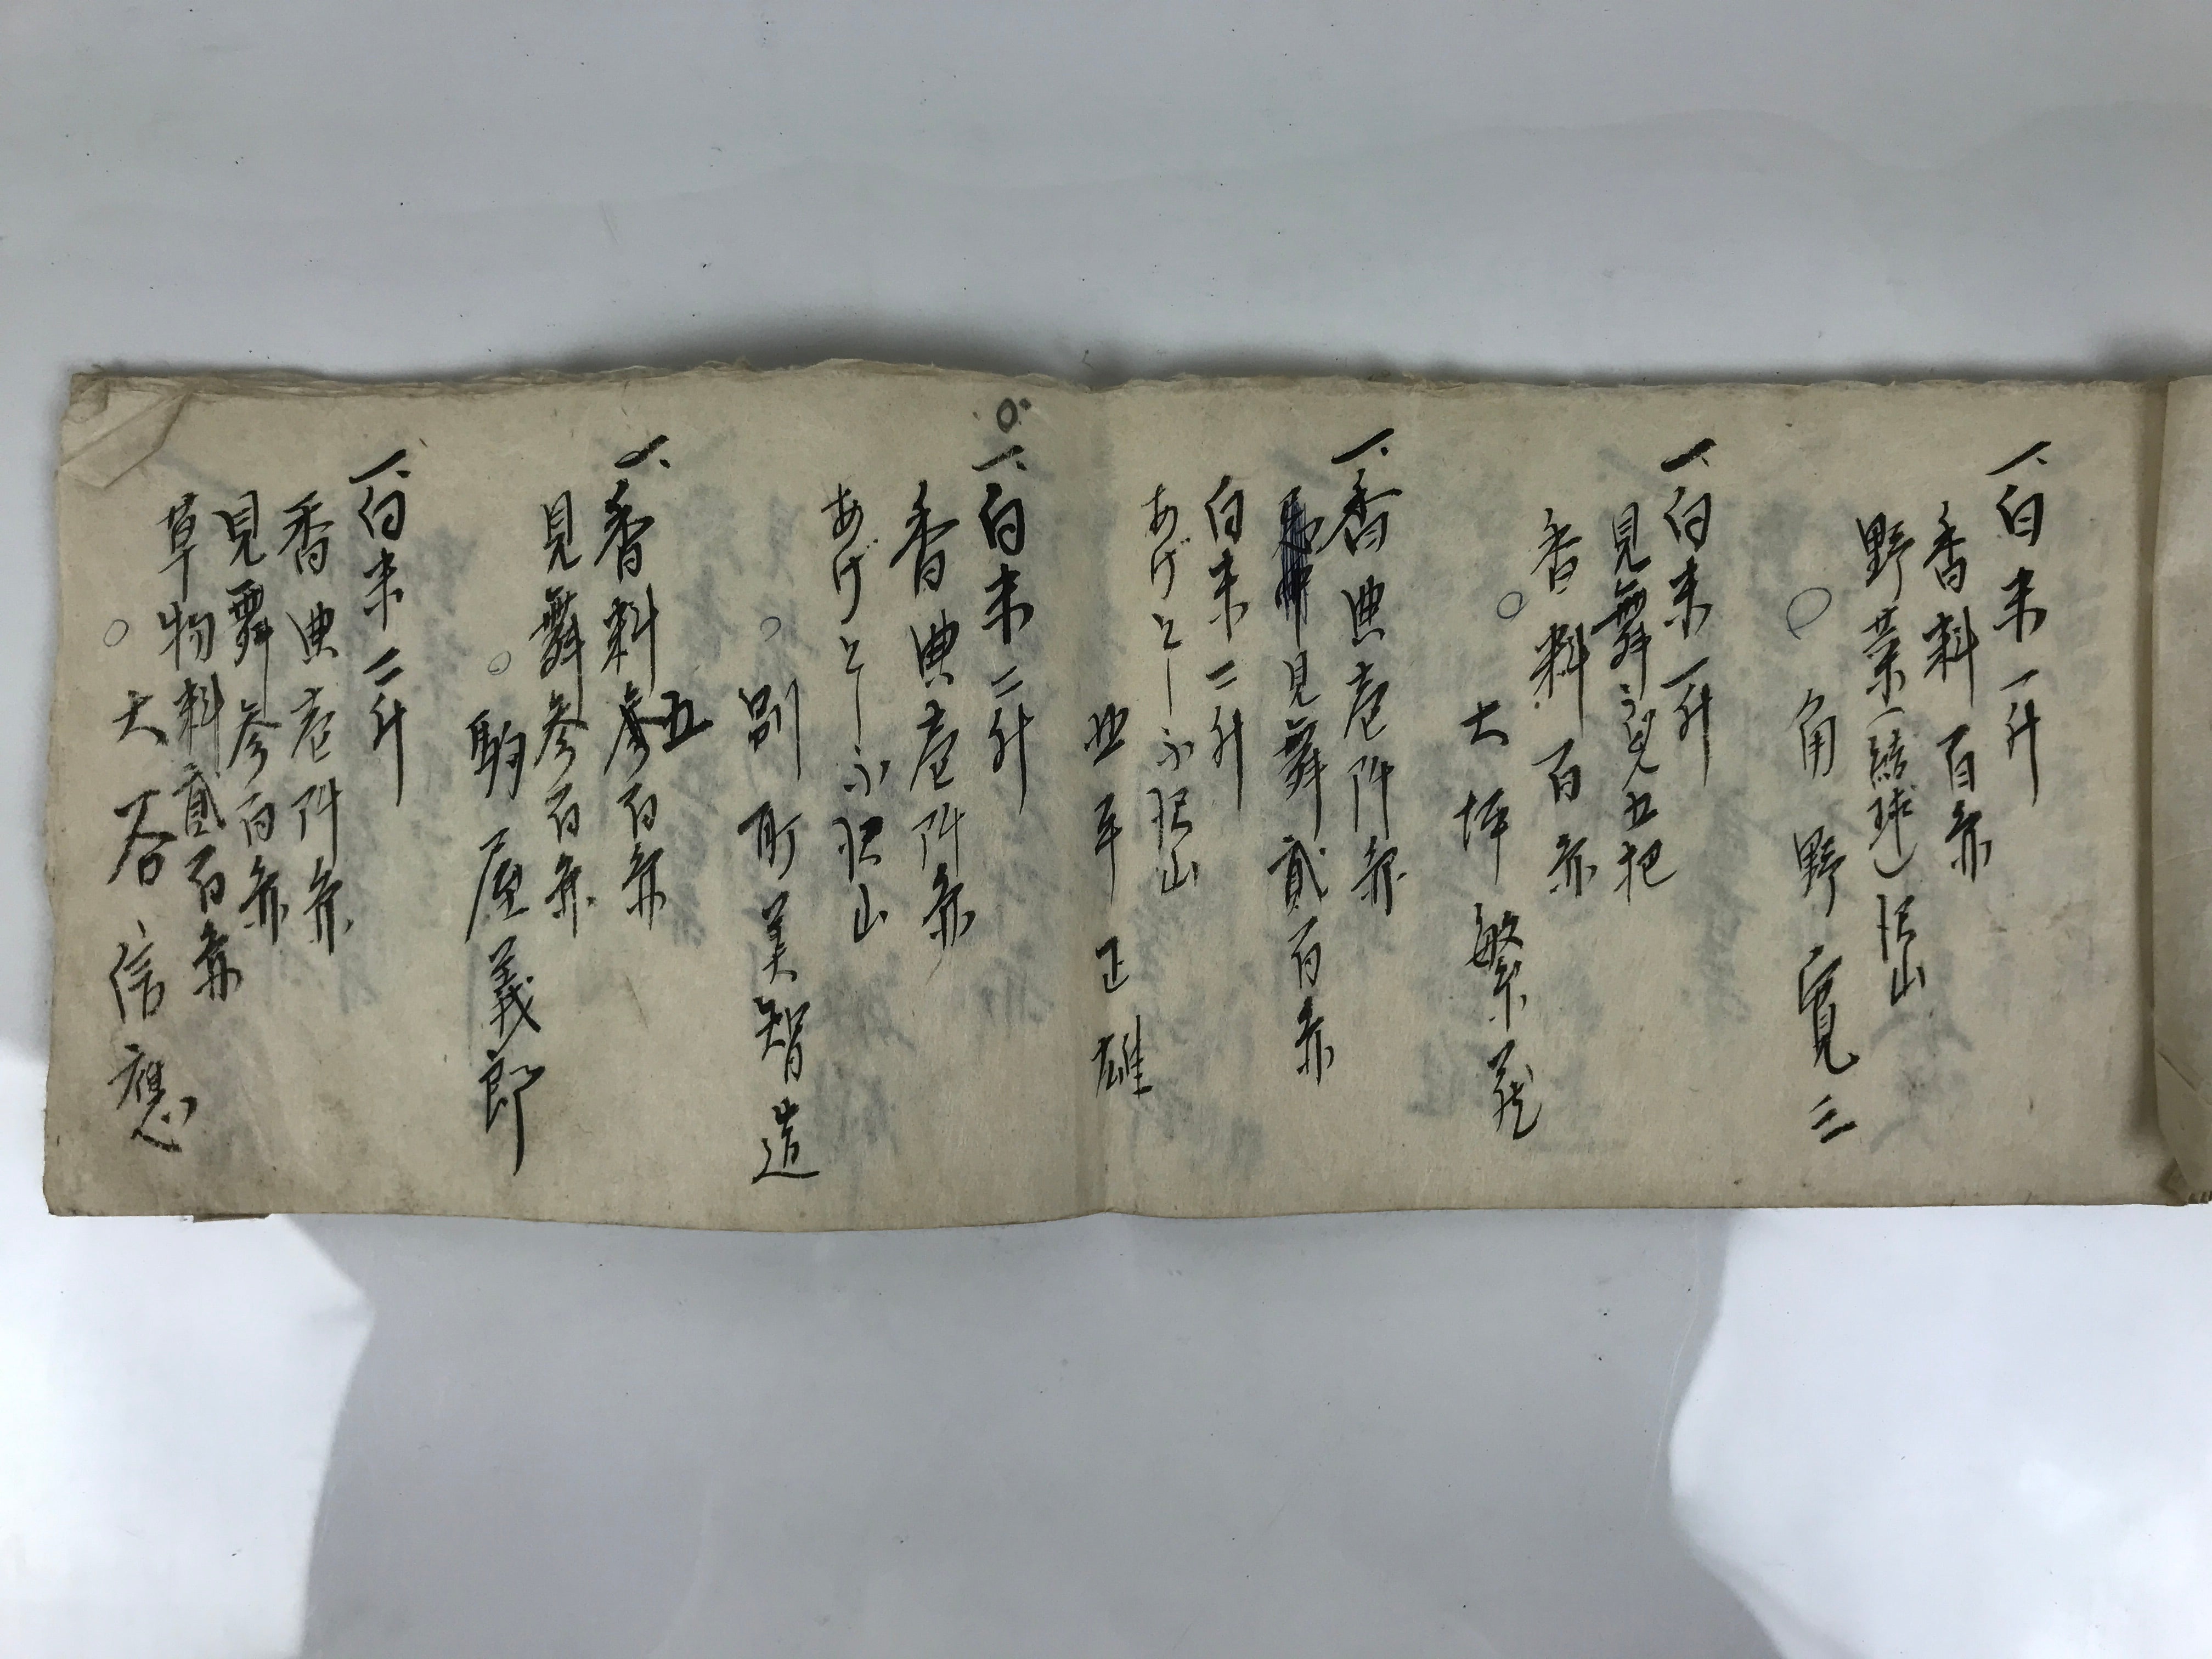 一、白米一升
香料百円
野菜(結球)沢山
角野寛三
一、白米一升
見舞 五把
香料百円
大坪繁蔵
一、香典壱阡円
見舞貳百円
白米二升
あげとーふ沢山
正雄
一、白米二升
香典壱阡円
あげとーふ沢山
別所美智造
一、香料五百円
見舞参百円
駒屋義郎
一、白米二升
香典壱阡円
見舞参百円
草物料貳百円
大谷信應